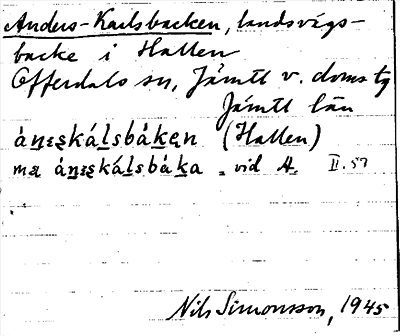 Anders-Karlsbacken, landsvägs-
backe i Hallen
Offerdals sn, Jämtl v. doms tg
Jämtl län
áṉεskáḻsbáḵęn (Hallen)
mę áṉεskáḻsbáḵa vid A. II. 57
Nils Simonsson, 1945